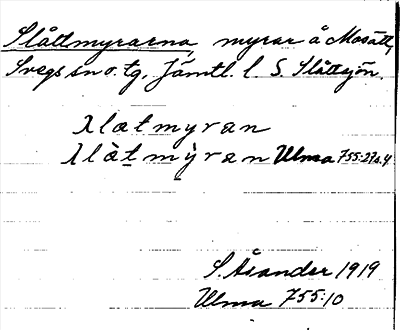 Slåttmyrarna, myrar å Mosätt,
Svegs sn o. tg, Jämtl. l. S. Slåttsjön.
λlatmyran
λlàt myran Ulma 755:27 s. 4
S. Åsander 1919
Ulma 755:10